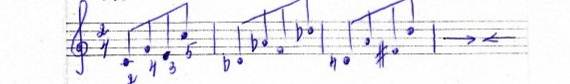 2
4
2 4 3 5